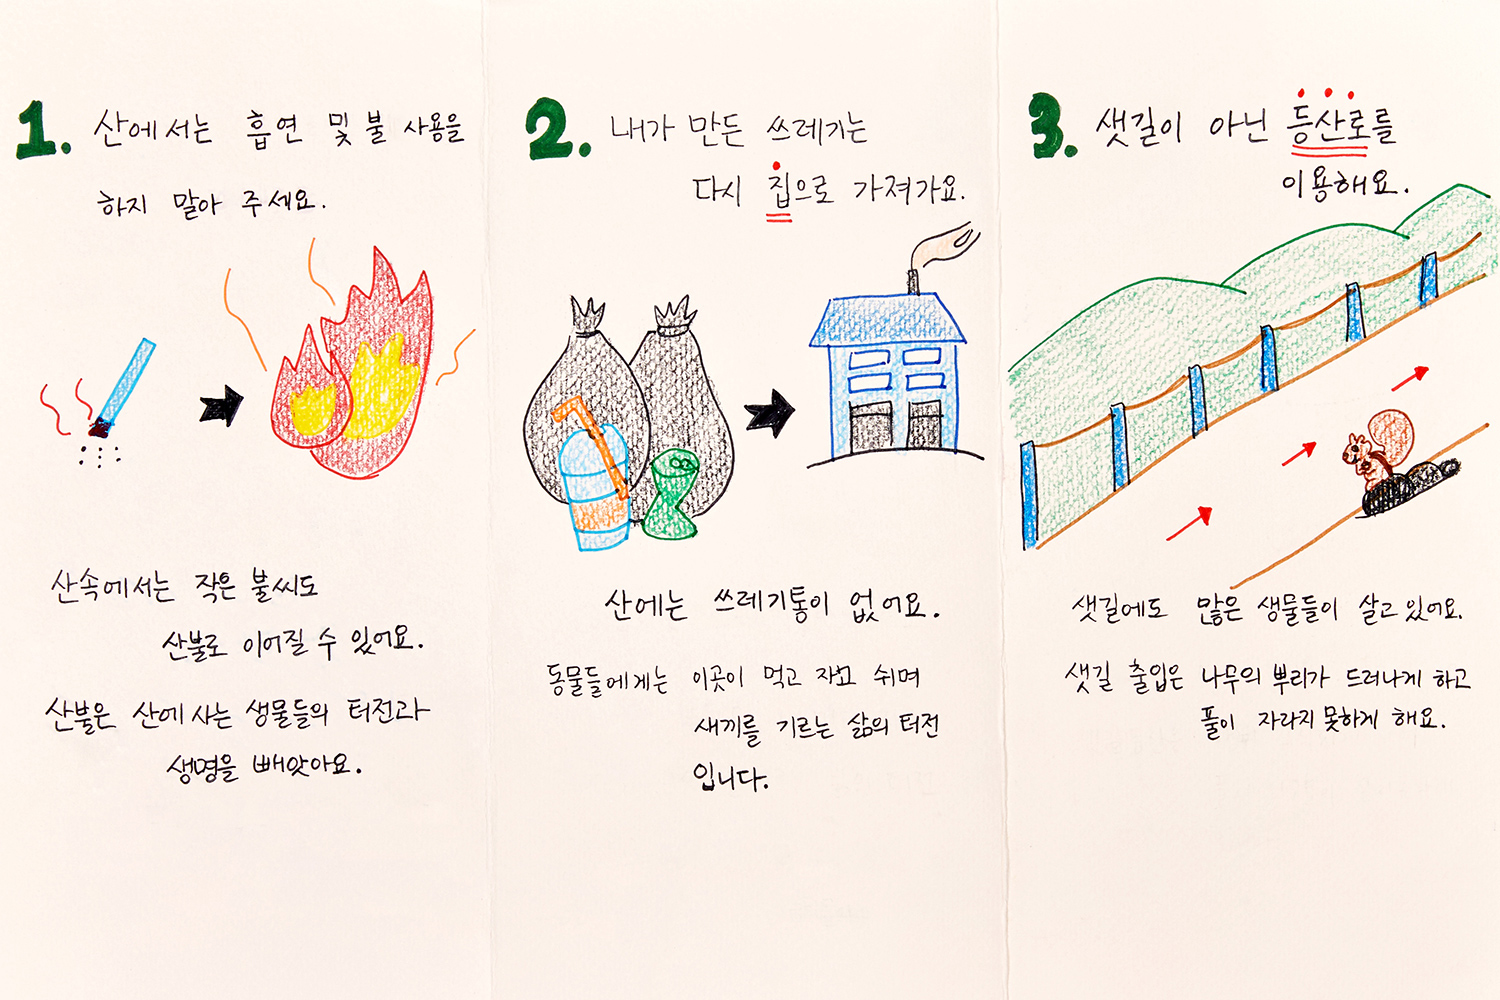 1. 산에서는 흡연 및 불 사용을
하지 말아 주세요.
산속에서는 작은 불씨도
산불로 이어질 수 있어요.
산불은 산에 사는 생물들의 터전과
생명을 빼앗아요.
2. 내가 만든 쓰레기는
다시 집으로 가져가요.
산에는 쓰레기통이 없어요.
동물들에게는 이곳이 먹고 자고 쉬며
새끼를 기르는 삶의 터전
입니다.
3. 샛길이 아닌 등산로를
이용해요.
샛길에도 많은 생물들이 살고 있어요.
샛길 출입은 나무의 뿌리가 드러나게 하고
풀이 자라지 못하게 해요.